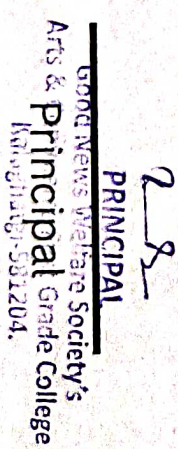 PRINCIPAL
Good News Welfare Society's
Arts & Principal Grade College
581204.